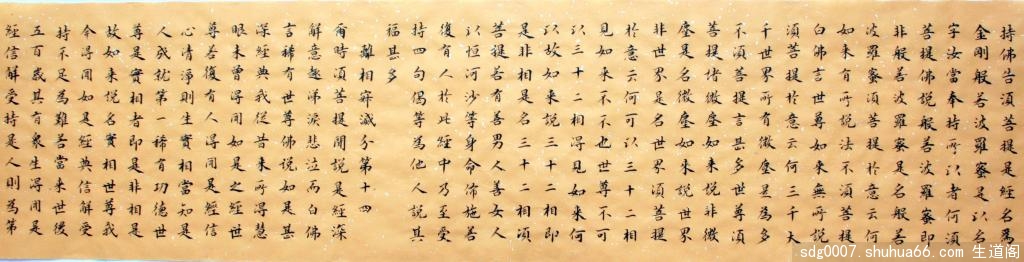 持佛告須菩提是經名為
金剛般若波羅蜜是以名
字汝當奉持所以者何須
菩提佛說般若波羅蜜即
非般若波羅蜜是名般若
波羅蜜須菩提於意云何
如來有所說法不須菩提
白佛言世尊如來無所說
須菩提於意云何三千大
千世界所有微塵是為多
不須菩提言甚多世尊須
菩提諸微塵如來說非微
塵是名微塵如來說世界
非世界是名世界須菩提
於意云何可以三十二相
見如來不不也世尊不可
以三十二相得見如來何
以故如來說三十二相即
是非相是名三十二相須
菩提若有善男子善女人
以恒河沙等身命佈施若
復有人於此經中乃至受
持四句偈等為他人說其
福甚多
離相寂滅分第十四
爾時須菩提聞說是經深
解意趣涕淚悲泣而白佛
言稀有世尊佛說如是甚
深經典我從昔來所得慧
眼未曾得聞如是之經世
尊若復有人得聞是經信
心清淨則生實相當知是
人成就第一稀有功德世
尊是實相者即是非相是
故如來說名實相世尊我
今得聞如是經典信解受
持不足為難若當來世後
五百歲其有眾生得聞是
經信解受持是人則為第
sdg0007.shuhua66.com 生道阁